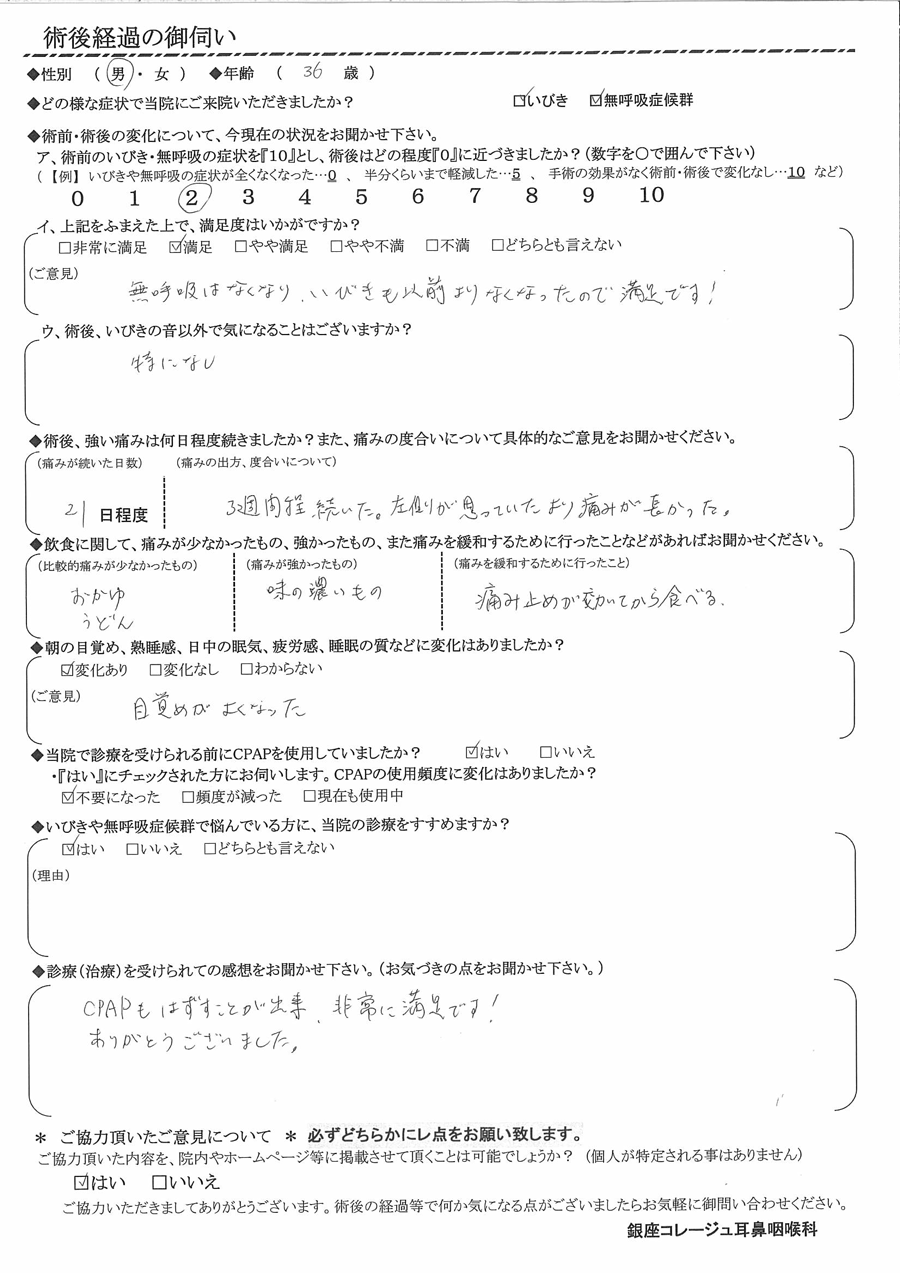 術後経過の御伺い
◆性別 ( 男・女 ) ◆年齢 ( 36 歳 )
◆どの様な症状で当院にご来院いただきましたか? ☑いびき ☑無呼吸症候群
◆術前・術後の変化について、今現在の状況をお聞かせ下さい。
ア、術前のいびき・無呼吸の症状を『10』とし、術後はどの程度『0』に近づきましたか?(数字を〇で囲んで下さい)
(【例】いびきや無呼吸の症状が全くなくなった…0 、 半分くらいまで軽減した…5 、 手術の効果がなく術前・術後で変化なし…10 など)
0 1 2 3 4 5 6 7 8 9 10
イ、上記をふまえた上で、満足度はいかがですか?
□非常に満足 ☑満足 □やや満足 □やや不満 □不満 □どちらとも言えない
(ご意見)
無呼吸はなくなり、いびきも以前よりなくなったので満足です!
ウ、術後、いびきの音以外で気になることはございますか?
特になし
◆術後、強い痛みは何日程度続きましたか?また、痛みの度合いについて具体的なご意見をお聞かせください。
(痛みが続いた日数) (痛みの出方、度合いについて)
21 日程度 3週間程続いた。左側が思っていたより痛みが長かった。
◆飲食に関して、痛みが少なかったもの、強かったもの、また痛みを緩和するために行ったことなどがあればお聞かせください。
(比較的痛みが少なかったもの) (痛みが強かったもの) (痛みを緩和するために行ったこと)
おかゆ 味の濃いもの 痛み止めが効いてから食べる.
うどん
◆朝の目覚め、熟睡感、日中の眠気、疲労感、睡眠の質などに変化はありましたか?
☑変化あり □変化なし □わからない
(ご意見)
目覚めがよくなった
◆当院で診療を受けられる前にCPAPを使用していましたか? ☑はい □いいえ
・『はい』にチェックされた方にお伺いします。CPAPの使用頻度に変化はありましたか?
☑不要になった □頻度が減った □現在も使用中
◆いびきや無呼吸症候群で悩んでいる方に、当院の診療をすすめますか?
☑はい □いいえ □どちらとも言えない
(理由)
◆診療(治療)を受けられての感想をお聞かせ下さい。(お気づきの点をお聞かせ下さい。)
CPAPもはずすことが出来、非常に満足です!
ありがとうございました。
＊ ご協力頂いたご意見について ＊ 必ずどちらかにレ点をお願い致します。
ご協力頂いた内容を、院内やホームページ等に掲載させて頂くことは可能でしょうか? (個人が特定される事はありません)
☑はい □いいえ
ご協力いただきましてありがとうございます。術後の経過等で何か気になる点がございましたらお気軽に御問い合わせください。
銀座コレージュ耳鼻咽喉科